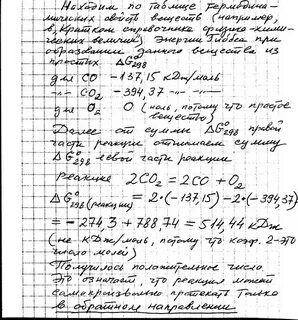 Находим по таблице термодина-
мических свойств веществ (например,
в "Кратком справочнике физико-хими-
ческих величин") энергии Гиббса при
образовании данного вещества из
простых ΔG°298
для CO -137,15 кДж/моль
-"- CO2 -394,37 -"- -"-
для O2 0 (ноль, потому что простое
вещество)
Далее от суммы ΔG°298 правой
части реакции отнимаем сумму
ΔG°298 левой части реакции
реакция 2CO2 = 2CO + O2
ΔG°298(реакции) = 2·(-137,15) - 2·(-394,37)
= -274,3 + 788,74 = 514,44 кДж
(не кДж/моль, потому что коэф. 2 - это
число молей)
Получилось положительное число
это означает, что реакция может
самопроизвольно протекать только
в обратном направлении